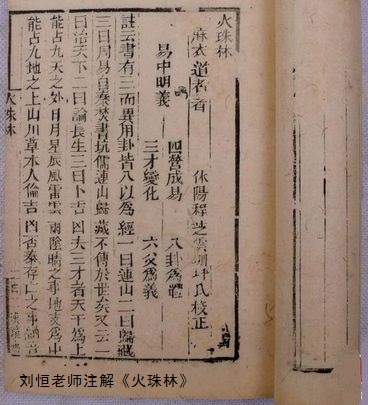 火珠林
麻衣道者著 休陽程芝雲剛坪氏校正
四營成易 八卦為體
易中明義
三才變化 六爻為義
註云書有三而異用卦皆八以為經一曰連山二曰歸藏
三曰周易自秦焚書坑儒連山歸藏不傳於世矣又云一
曰治天下二曰論長生三曰卜吉凶夫三才者天為上
能占九天之外日月星辰風雷雲雨陰晴之事地為中
能占九地之上山川草木人倫吉凶否泰存亡之事
火珠林
刘恒老师注解《火珠林》